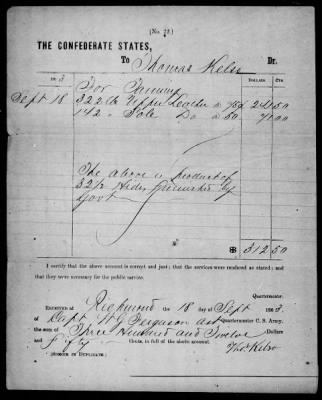 (No. 22.)
THE CONFEDERATE STATES,
To Thomas Kelso Dr.
DOLLARS CTS.
186 3
Sept 18 For Tanning
322 lb Upper Leather @ 75¢ 241 50
142 " Sole Do @ 50 71 00
The above is product of
32½ Hides furnished by
Govt
312 50
I certify that the above account is correct and just; that the services were rendered as stated; and
that they were necessary for the public service.
Quartermaster.
RECEIVED at Richmond the 18 day of Sept 186 3,
of Capt H G Ferguson act Quartermaster C. S. Army,
the sum of Three Hundred and Twelve Dollars
and fifty Cents, in full of the above account.
(SIGNED IN DUPLICATE) Thos Kelso